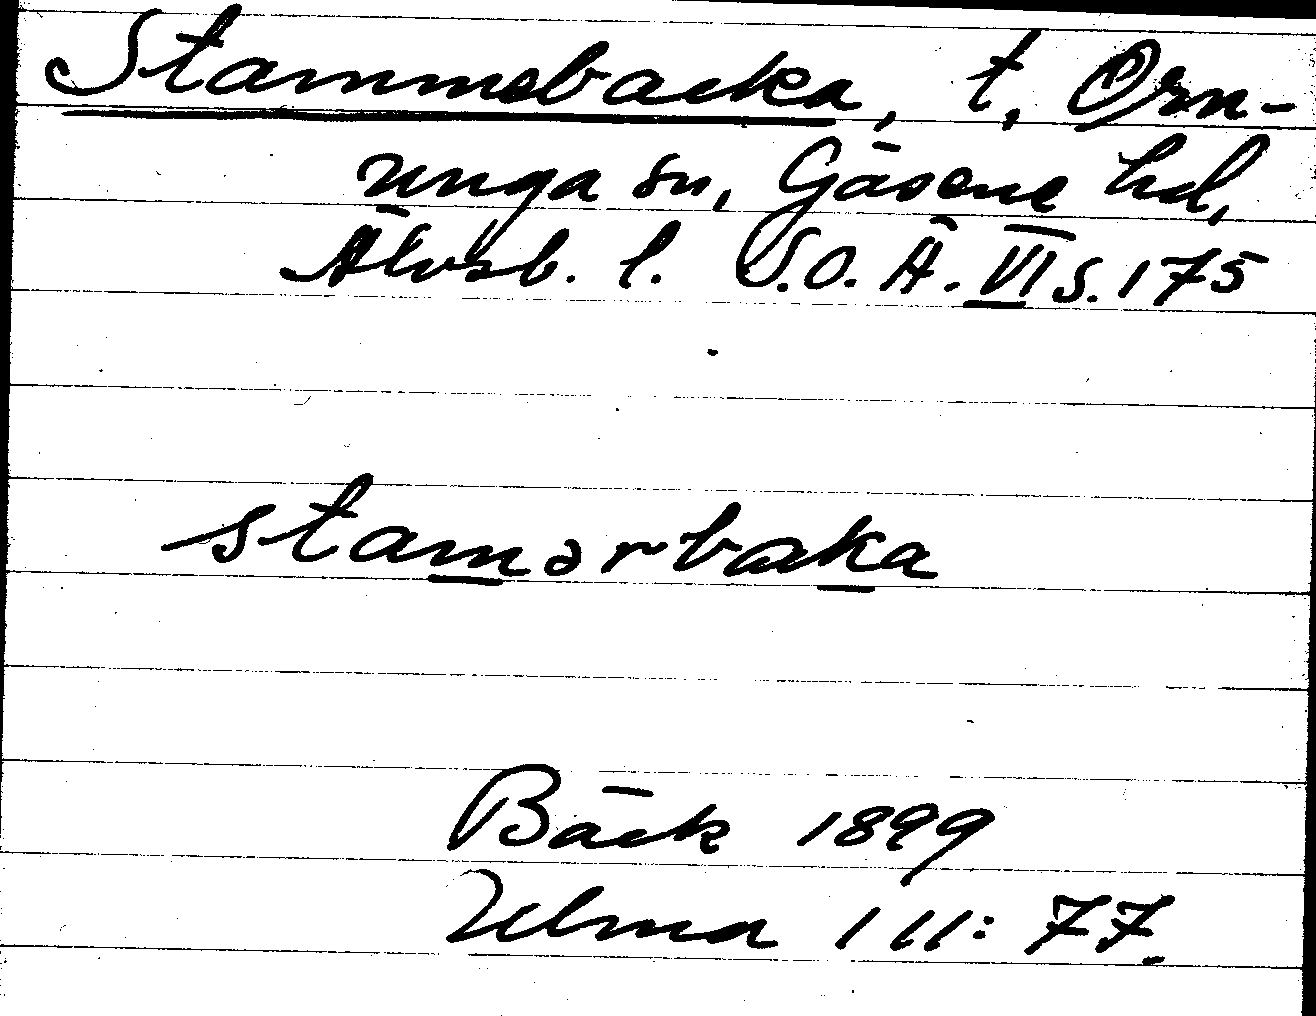 Stammebacka, t, Örn-
unga sn, Gäsene hd,
Älvsb. l. S.O.Ä. VI s. 175
stamərbaka
Bäck 1899
Ulma 111:77.